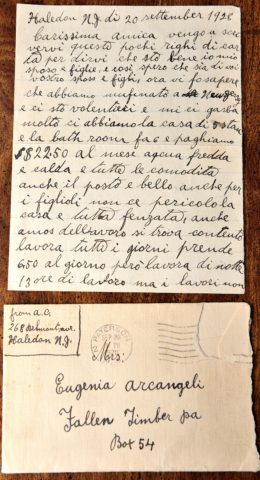 Haledon N.J. di 20 settember 1928
Carissima amica vengo a scri
vervi questo pochi righi di car
ta per dirvi che sto bene io mio
sposo e figlie, e così spero che sia di voi
vostro sposs e figli, ora vi fo sapere
che abbiamo mufinato a
e ci sto volentieri e mi ci garba
molto ci abbiamo la casa di
e la bath room fa 6 e paghiamo
$822.50 al mesi agcua fredda
e calda e tutte le comodita
anchie il posto e bello anche per
i figliodi non ce pericolo la
casa e tutta fenzata, anche
amos dell'avoro si trova contento
lavora tutti i giorni prende
6,50 al giorno però lavora di notte
13 ore di lavoro ma i lavori non
from a.C.
268 Belmont, ave.
Haledon N.J.
PATERSON
N.J.
Mrs:
Eugenia Arcangeli
Fallen Timber pa
Box 54